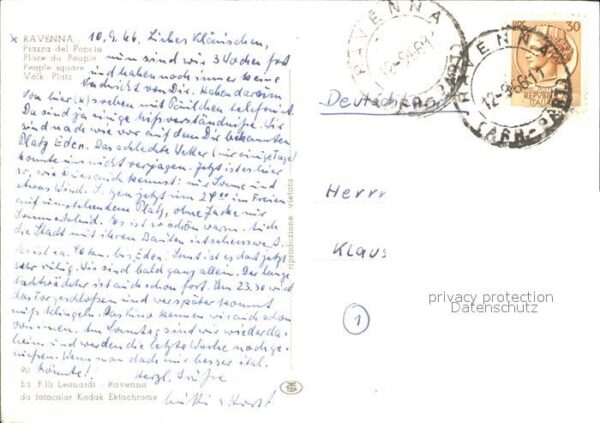 RAVENNA
Piazza del Popolo
Place du Peuple
People square
Volk. Platz
10.9.66. Liebes Kläuschen,
nun sind wir 3 Wochen fort
und haben noch immer keine
Nachricht von Dir. Haben darum
von hier (x) soeben mit telefoniert.
Da sind ja einige Mißverständnisse. Wir
sind nach wie vor auf dem Dir bekannten
Platz Eden. Das schlechte Wetter (nur einige Tage)
konnte uns nicht verjagen. Jetzt ist es hier
so, wie wir es auch kennst: nur Sonne und
etwas Wind. Sitzen jetzt um 21.00 im Freien
auf umstehendem Platz, ohne Jacke nur
Sommerkleid. Es ist so schön warm. Auch
die Stadt mit ihren Bauten ist sehenswert.
Es ist ca. 40 km. bis Eden. Sonst ist es dort jetzt
sehr ruhig. Wir sind bald ganz allein. Der lange
Nachtwächter ist auch schon fort. Um 23.30 wird
das Tor geschlossen und wer später kommt
muß klingeln. Das Kino kennen wir auch schon
von innen. Am Sonntag sind wir wieder da-
heim und werden die letzte Woche noch ge-
nießen. Wenn man doch nur besser ital.
könnte!! Herzl. Grüße
Mutti u Horst
90
Ed. F.lli Leonardi - Ravenna
da fotocolor Kodak Ektachrome
riproduzione vietata
RAVENNA
12-9-66 11
RAVENNA
12-9-66 11
CARR-PERIO
30
REPUBBLICA
ITALIANA
Deutschland
Herrn
Klaus
1
privacy protection
Datenschutz